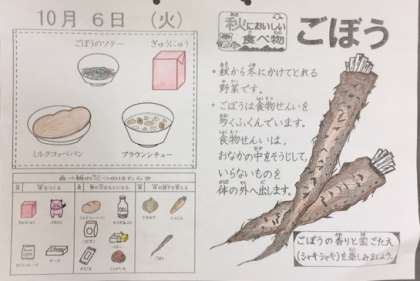 10月 6日 (火)
ごぼうのソテー
ぎゅうにゅう
ミルクコッペパン
ブラウンシチュー
秋においしい
食べ物
ごぼう
・秋から冬にかけてとれる
野菜です。
・ごぼうは食物せんいを
多くふくんでいます。
食物せんいは、
おなかの中をそうじして、
いらないものを
体の外へ出します。
ごぼうの香りと歯ごたえ
(シャキシャキ)を楽しみましょう。